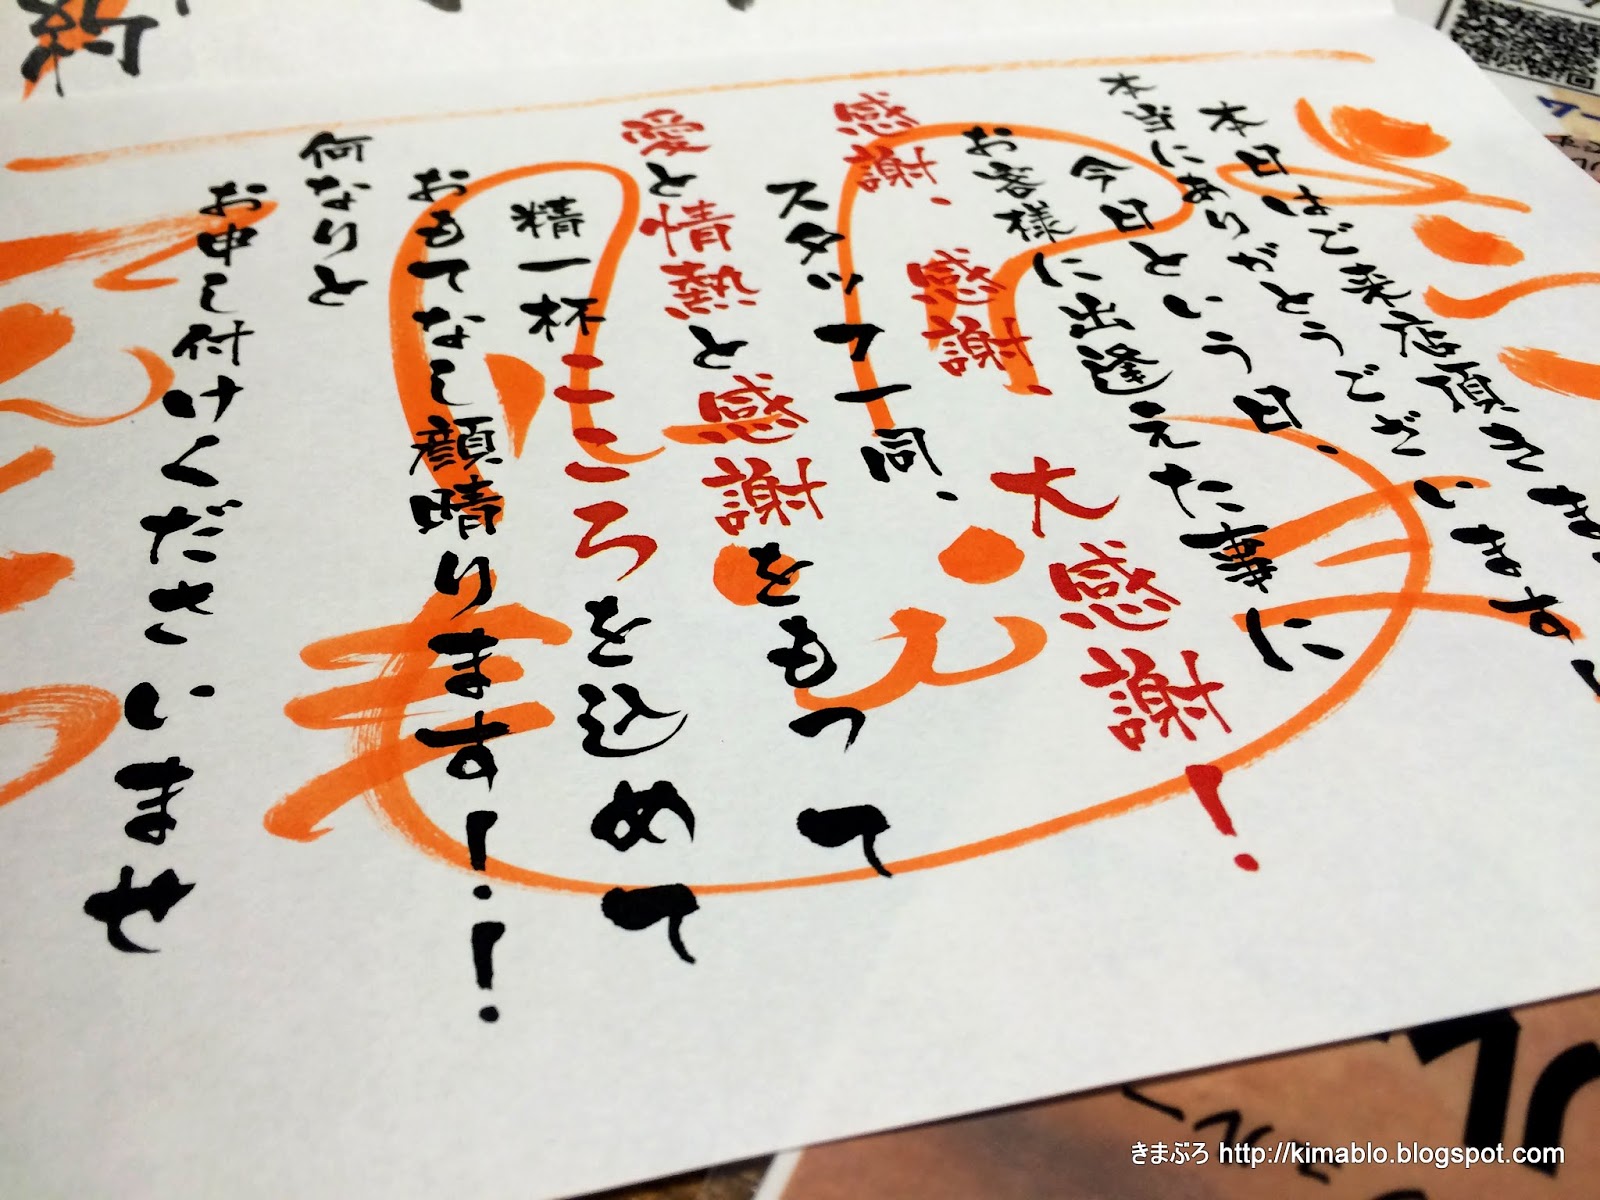 本日はご来店頂きま
本当にありがとうございます!
今日という日、
お客様に出逢えた事に
感謝、感謝、大感謝!
スタッフ一同、
愛と情熱と感謝をもって
精一杯こころを込めて
おもてなし顔晴ります!!
何なりと
お申し付けくださいませ
きまぶろ http://kimablo.blogspot.com